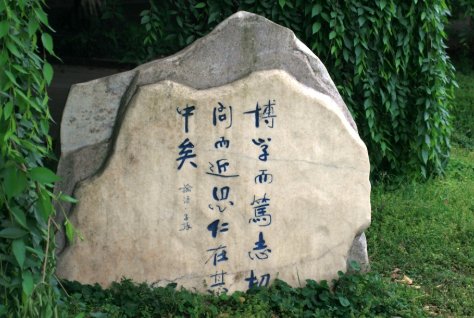 博学而篤志切
问而近思仁在其
中矣
论语 子张